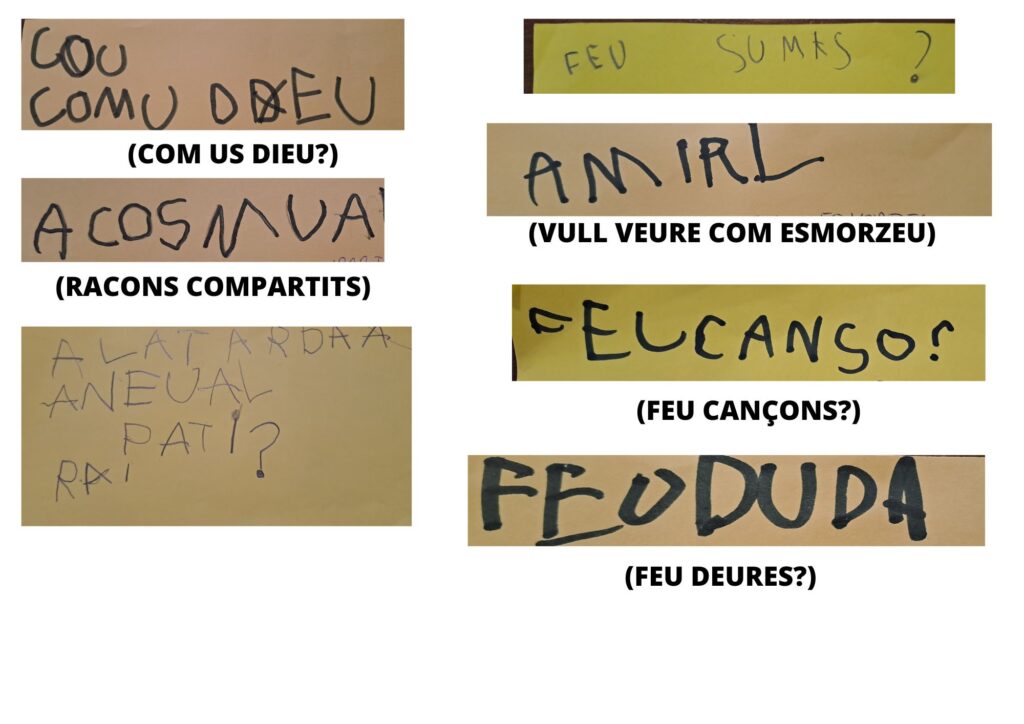 COU
COMU DXEU
(COM US DIEU?)
ACOSMUA
(RACONS COMPARTITS)
A LA TARDA A
ANEU AL
PATI?
FEU SUMAS ?
AMIRL
(VULL VEURE COM ESMORZEU)
FEUCANSO?
(FEU CANÇONS?)
FEODUDA
(FEU DEURES?)